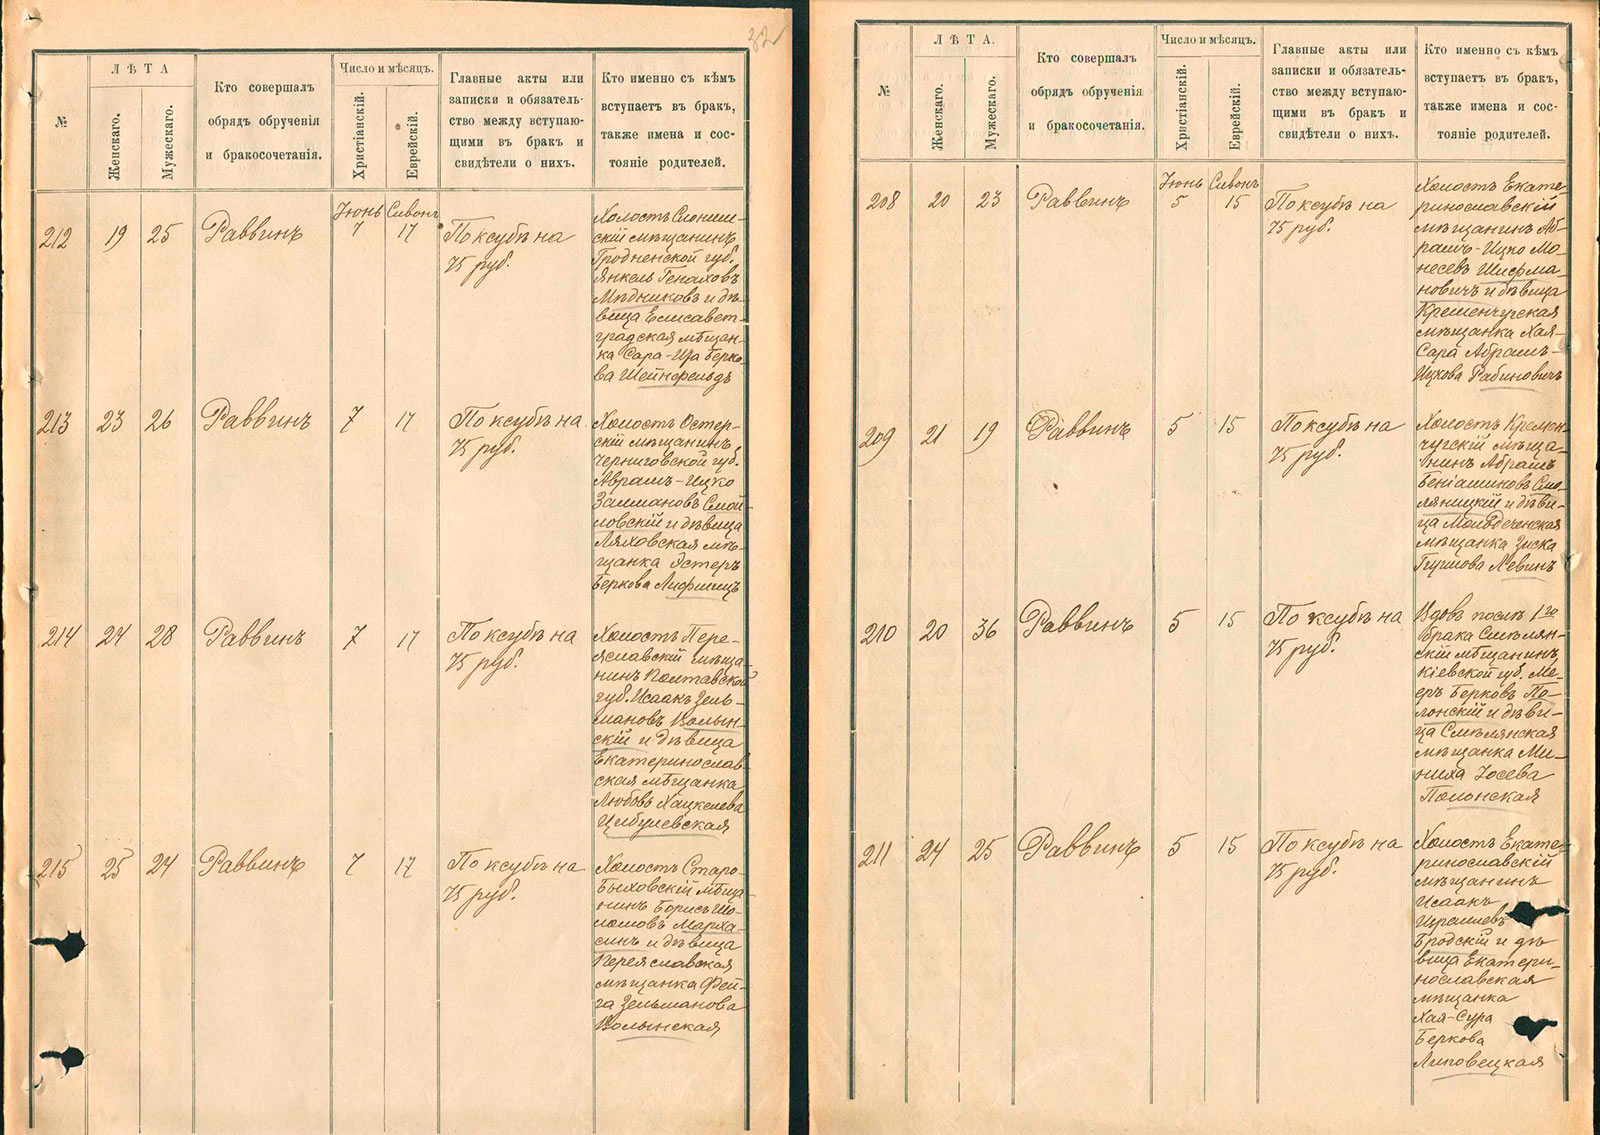 32
№
ЛѢТА
Женскаго.
Мужескаго.
Кто совершалъ
обрядъ обрученія
и бракосочетанія.
Число и мѣсяцъ.
Христіанскій.
Еврейскій.
Главные акты или
записки и обязатель-
ство между вступаю-
щими въ бракъ и
свидѣтели о нихъ.
Кто именно съ кѣмъ
вступаетъ въ бракъ,
также имена и сос-
тояніе родителей.
212 19 25 Раввинъ
Іюнь 7
Сивонъ 17
По ксубѣ на
75 руб.
Холостъ Слоним-
скій мѣщанинъ
Гродненской губ.
Янкель Генаховъ
Мѣдниковъ и дѣ-
вица Елисавет-
градская мѣщан-
ка Сара-Ита Берко-
ва Шейнфельдъ
213 23 26 Раввинъ 7 17
По ксубѣ на
75 руб.
Холостъ Остер-
скій мѣщанинъ
Черниговской губ.
Аврамъ-Ицко
Залмановъ Смой-
ловскій и дѣвица
Ляховская мѣ-
щанка Эстеръ
Беркова Лифшицъ
214 24 28 Раввинъ 7 17
По ксубѣ на
75 руб.
Холостъ Пере-
яславскій мѣща-
нинъ Полтавской
губ. Исаакъ Зель-
мановъ Волын-
скій и дѣвица
Екатеринослав-
ская мѣщанка
Любовь Хацкелева
Цыбулевская
215 25 24 Раввинъ 7 17
По ксубѣ на
75 руб.
Холостъ Старо-
Быховскій мѣща-
нинъ Борисъ Шо-
ломовъ Марха-
синъ и дѣвица
Переяславская
мѣщанка Фей-
га Зельманова
Волынская
№
ЛѢТА.
Женскаго.
Мужескаго.
Кто совершалъ
обрядъ обрученія
и бракосочетанія.
Число и мѣсяцъ.
Христіанскій.
Еврейскій.
Главные акты или
записки и обязатель-
ство между вступаю-
щими въ бракъ и
свидѣтели о нихъ.
Кто именно съ кѣмъ
вступаетъ въ бракъ,
также имена и сос-
тояніе родителей.
208 20 23 Раввинъ
Іюнь 5
Сивонъ 15
По ксубѣ на
75 руб.
Холостъ Екате-
ринославскій
мѣщанинъ Аб-
рамъ-Ицко Мо-
несевъ Шифма-
новичъ и дѣвица
Кременчугская
мѣщанка Хая-
Сара Абрамъ-
Ицкова Рабиновичъ
209 21 19 Раввинъ 5 15
По ксубѣ на
75 руб.
Холостъ Кремен-
чугскій мѣща-
нинъ Абрамъ
Беніаминовъ Смо-
ляницкій и дѣви-
ца Молодеченская
мѣщанка Зиска
Гиршова Левинъ
210 20 36 Раввинъ 5 15
По ксубѣ на
75 руб.
Вдовъ послѣ 1го
брака Смѣлян-
скій мѣщанинъ
Кіевской губ. Ме-
еръ Берковъ По-
лонскій и дѣви-
ца Смѣлянская
мѣщанка Ми-
ниха Іосева
Полонская
211 24 25 Раввинъ 5 15
По ксубѣ на
75 руб.
Холостъ Екате-
ринославскій
мѣщанинъ
Исаакъ
Израилевъ
Бродскій и дѣ-
вица Екатери-
нославская
мѣщанка
Хая-Сура
Беркова
Липовецкая